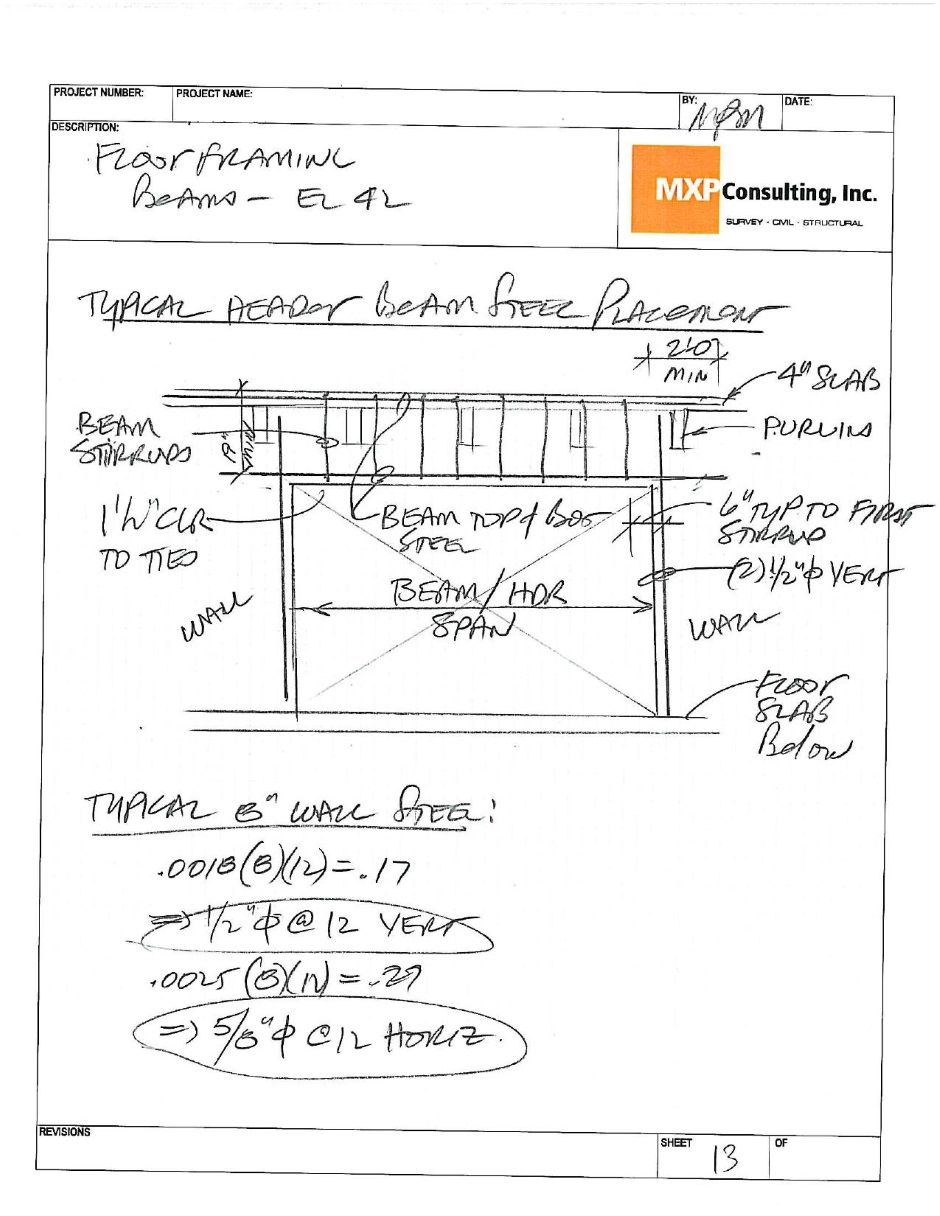 PROJECT NUMBER:
PROJECT NAME:
BY:
MPM
DATE:
DESCRIPTION:
FLOOR FRAMING
BEAMS - EL 42
MXP Consulting, Inc.
SURVEY - CIVIL - STRUCTURAL
TYPICAL HEADER BEAM STEEL PLACEMENT
2'-0"
MIN
4" SLAB
BEAM
STIRRUPS
PURLINS
1 1/2" CLR
TO TIES
BEAM TOP & BOT
STEEL
6" TYP TO FIRST
STIRRUP
(2) 1/2" Φ VERT
BEAM / HDR
SPAN
WALL
WALL
FLOOR
SLAB
Below
TYPICAL 8" WALL STEEL:
.0018(8)(12)=.17
=> 1/2" Φ @ 12 VERT
.0025(8)(12)=.29
=> 5/8" Φ @ 12 HORIZ.
REVISIONS
SHEET
13
OF